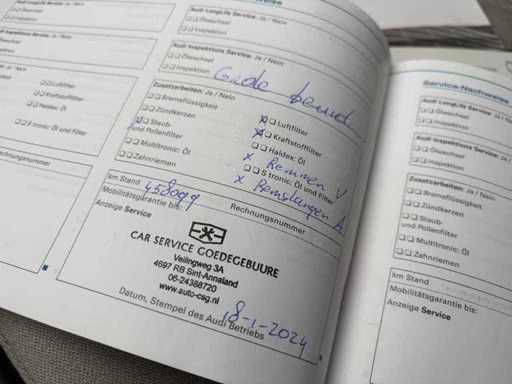 Audi LongLife Service: Ja / Nein
Ölwechsel
Inspektion
Audi Inspektions Service: Ja / Nein
Ölwechsel
Inspektion
Zusatzarbeiten: Ja / Nein
Bremsflüssigkeit
Zündkerzen
Staub-
und Pollenfilter
Multitronic: Öl
Zahnriemen
x Luftfilter
x Kraftstofffilter
Haldex: Öl
x Remmen V
S tronic: Öl und Filter
x Remstangen A
km Stand 458099
Mobilitätsgarantie bis:
Anzeige Service
Rechnungsnummer
CAR SERVICE GOEDEGEBUURE
Veilingweg 3A
4697 RB Sint-Annaland
06-24388720
www.auto-csg.nl
18-1-2024
Datum, Stempel des Audi Betriebs
Luftfilter
Kraftstofffilter
Haldex: Öl
S tronic: Öl und Filter
Rechnungsnummer
Service-Nachweise
Audi LongLife Service: Ja / Nein
Ölwechsel
Inspektion
Audi Inspektions Service: Ja / Nein
Ölwechsel
Inspektion
Zusatzarbeiten: Ja / Nein
Bremsflüssigkeit
Zündkerzen
Staub-
und Pollenfilter
Multitronic: Öl
Zahnriemen
km Stand
Mobilitätsgarantie bis:
Anzeige Service